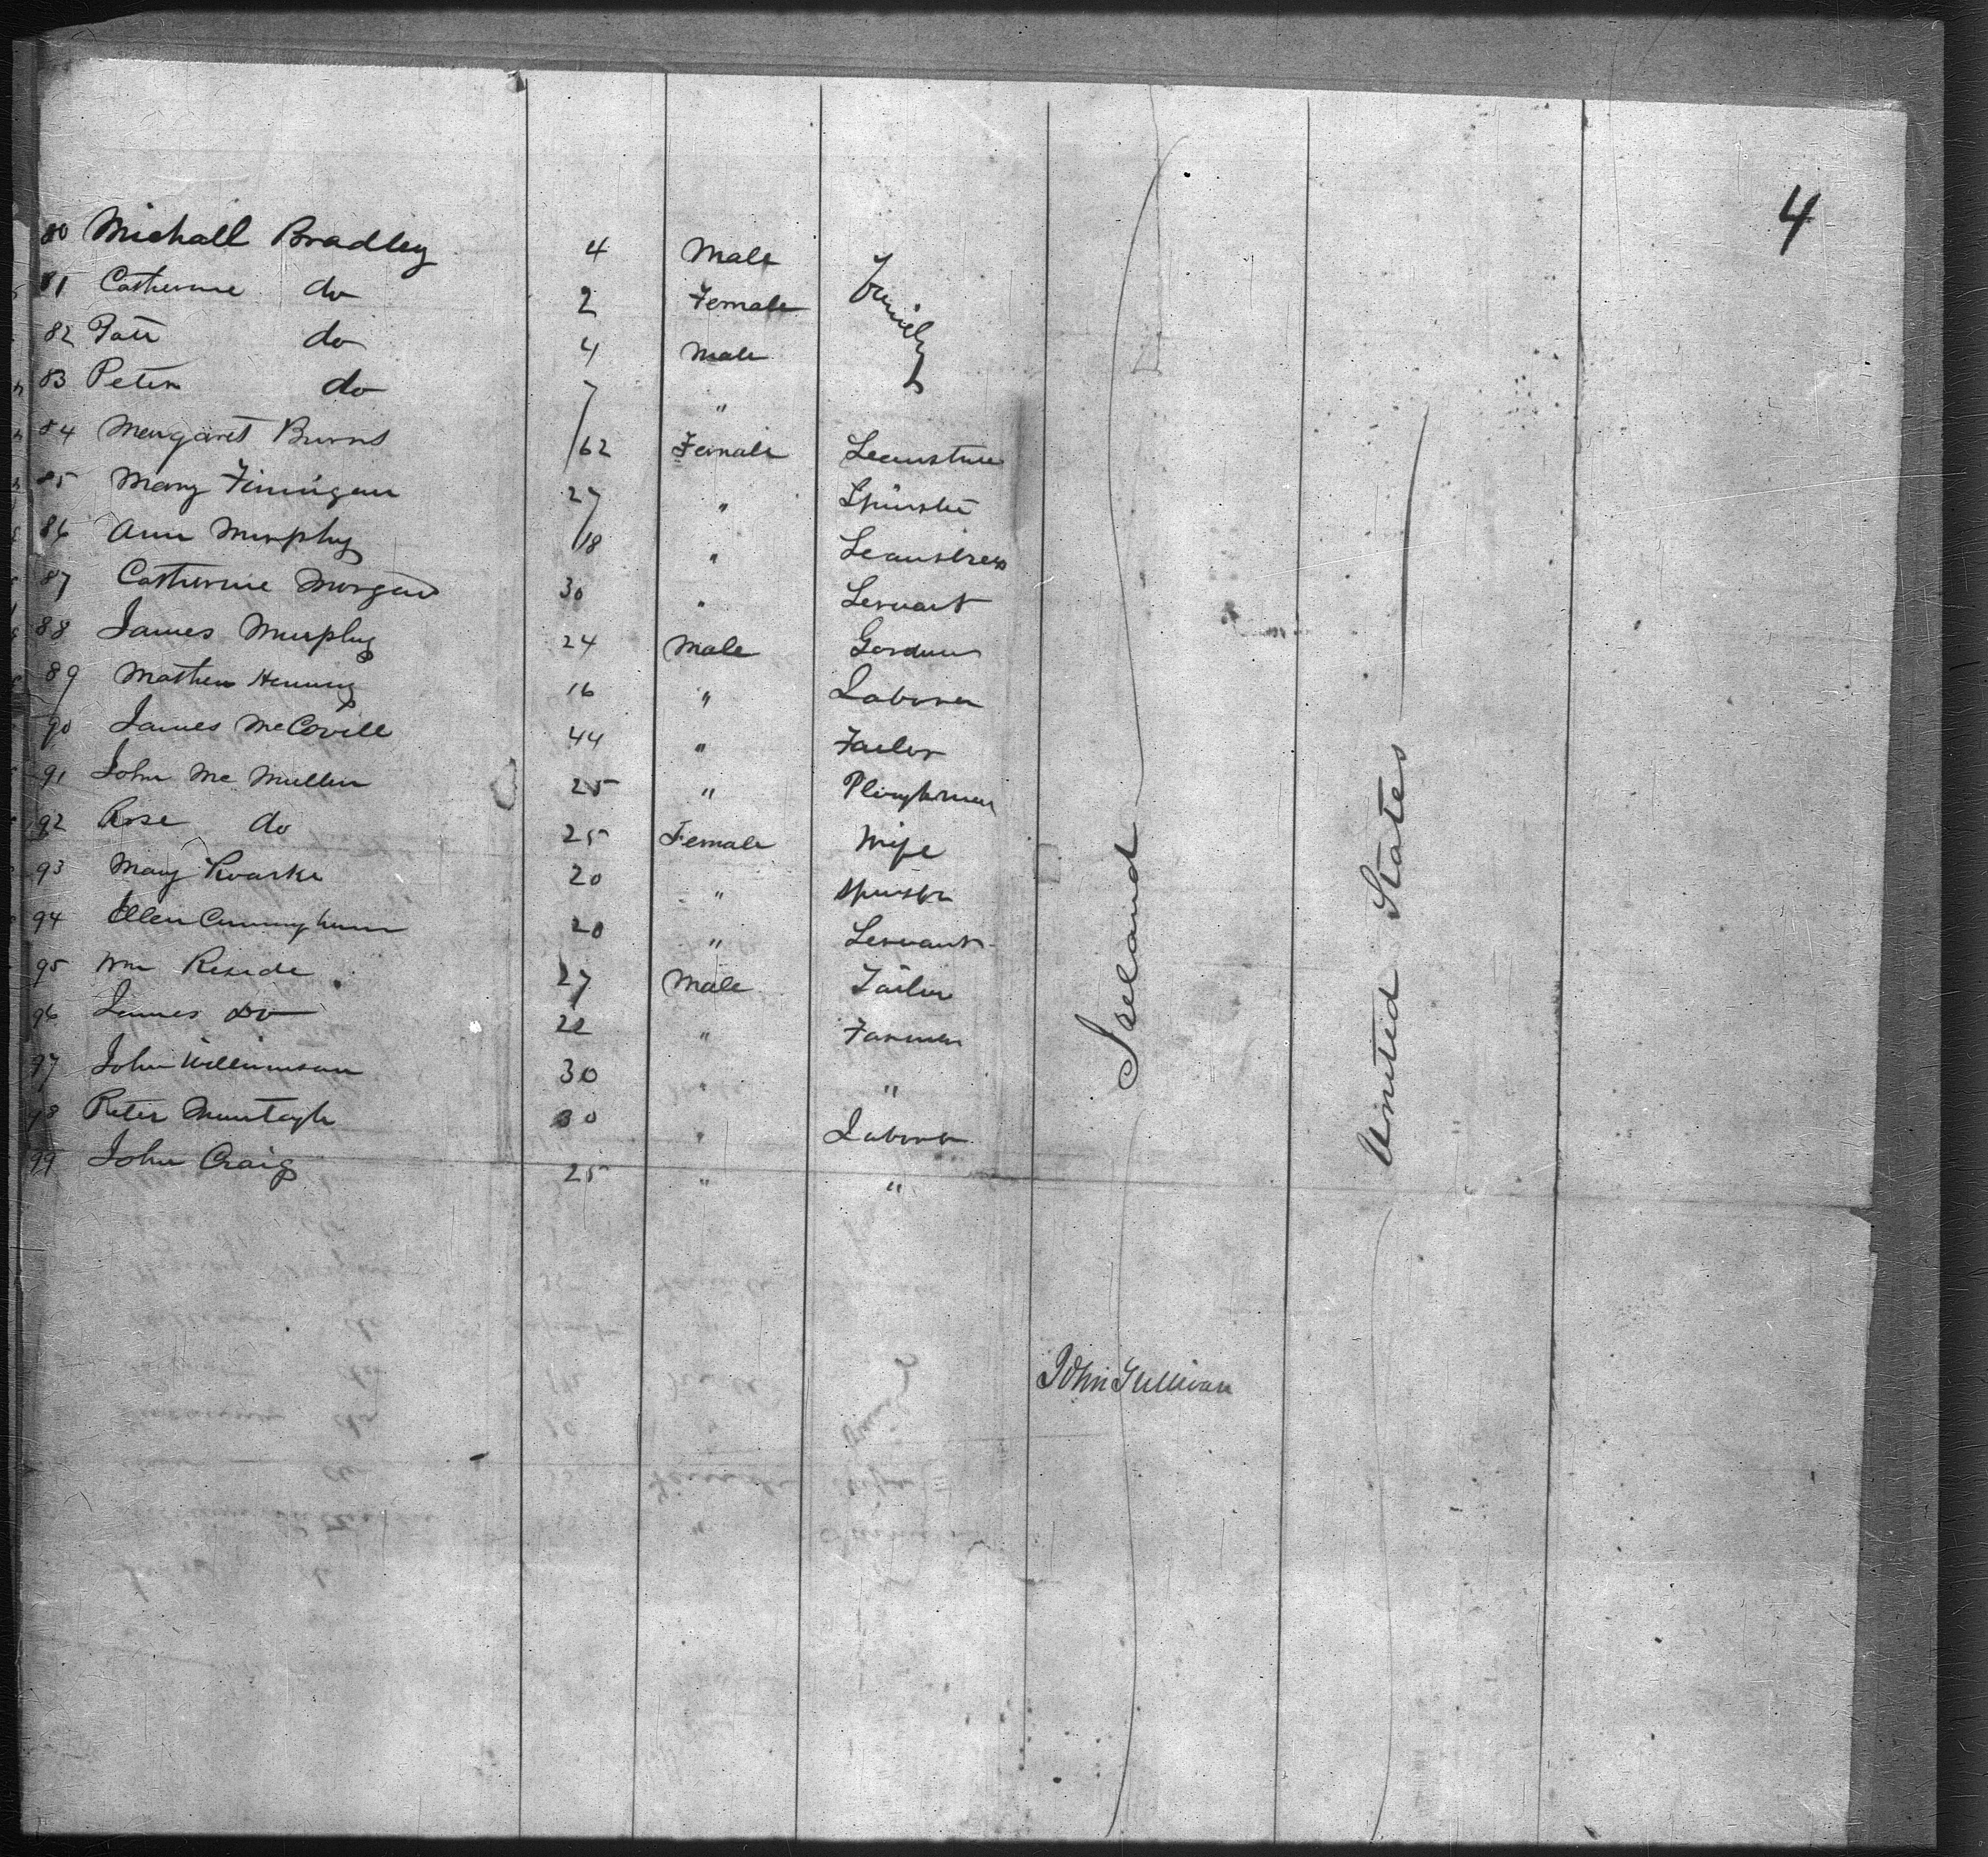 4
80 Michall Bradley 4 Male Family
81 Catherine do 2 Female
82 Patt do 4 Male
83 Peter do 7 "
84 Margaret Burns 62 Female
85 Mary Finnigan 27 " Spinster
86 Ann Murphy 18 " Seamstress
87 Catherine Morgan 30 " Servant
88 James Murphy 24 Male Gardner
89 Mathew 16 " Laborer
90 James McCovill 44 " Tailor
91 John McMullen 25 " Ploughman
92 Rose do 25 Female Wife
93 Mary Roarke 20 " Spinster
94 Ellen Cunningham 20 " Servant
95 Wm Reside 27 Male Tailor
96 James Do 22 " Farmer
97 John Williamson 30 " "
98 Peter Muntagh 30 " Laborer
99 John Craig 25 " "
Ireland
United States
John Sullivan